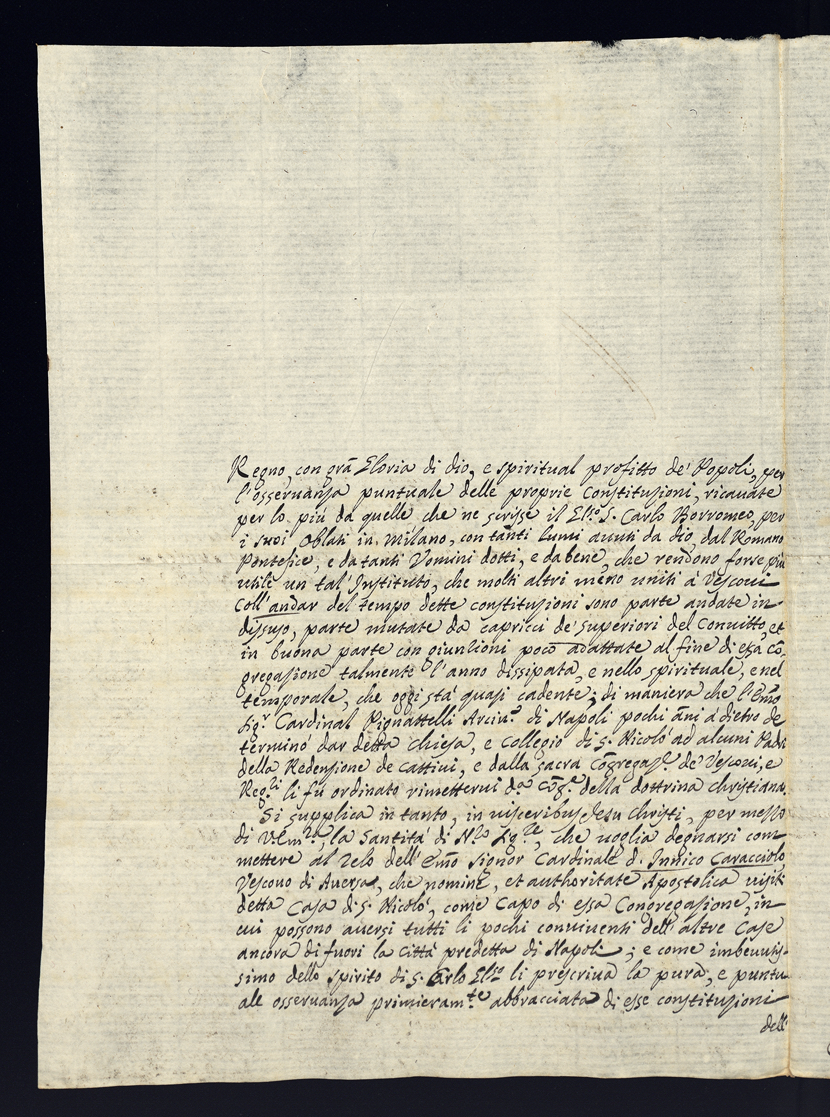 Regno, con grã Gloria di dio, e spiritual profitto de' Popoli, per
l'osseruanza puntuale delle proprie Constitutioni, ricauate
per lo più da quelle che ne scrisse il Glo: S. Carlo Borromeo, per
i suoi oblati in Milano, con tanti lumi auuti da dio, dal Romano
Pontefice, e da tanti Vomini dotti, e da bene, che rendono forse più
utile un tal'Instituto, che molti altri meno uniti à Vescoui
Coll'andar del tempo dette constitutioni sono parte andate in
dissuso, parte mutate da capricci de' superiori del Conuitto, et
in buona parte con giuntioni poco adattate al fine di essa Cõ-
gregatione talmente l'anno dissipata, e nello spirituale, e nel
temporale, che oggi stà quasi cadente; di maniera che l'Emõ
Sigr. Cardinal Pignattelli Arciuo. di Napoli pochi ãni à dietro de
terminò dar detta chiesa, e collegio di S. Nicolò ad alcuni Padri
della Redensione de cattiui, e dalla sacra Cõgregat. de' Vescoui, e
Regri. li fu ordinato rimetterui da Cõg. della dottrina christiana.
Si supplica in tanto, in uisceribus Jesu christi, per messo
di V. Emza, la Santità di Nro. Sigre, che uoglia degnarsi com
mettere al Zelo dell'Emõ Signor Cardinale d. Innico Caracciolo
Vescouo di Auersa, che nomine, et authoritate Apostolica uisiti
detta Casa di S. Nicolò, come Capo di essa Congregatione, in
cui possono auersi tutti li pochi conuiuenti dell'altre Case
ancora di fuori la Città predetta di Napoli; e come imbeuutis-
simo dello spirito di S. Carlo Glo: li prescriua la pura, e puntu-
ale osseruanza primieramte. abbracciata di esse constitutioni
dell'